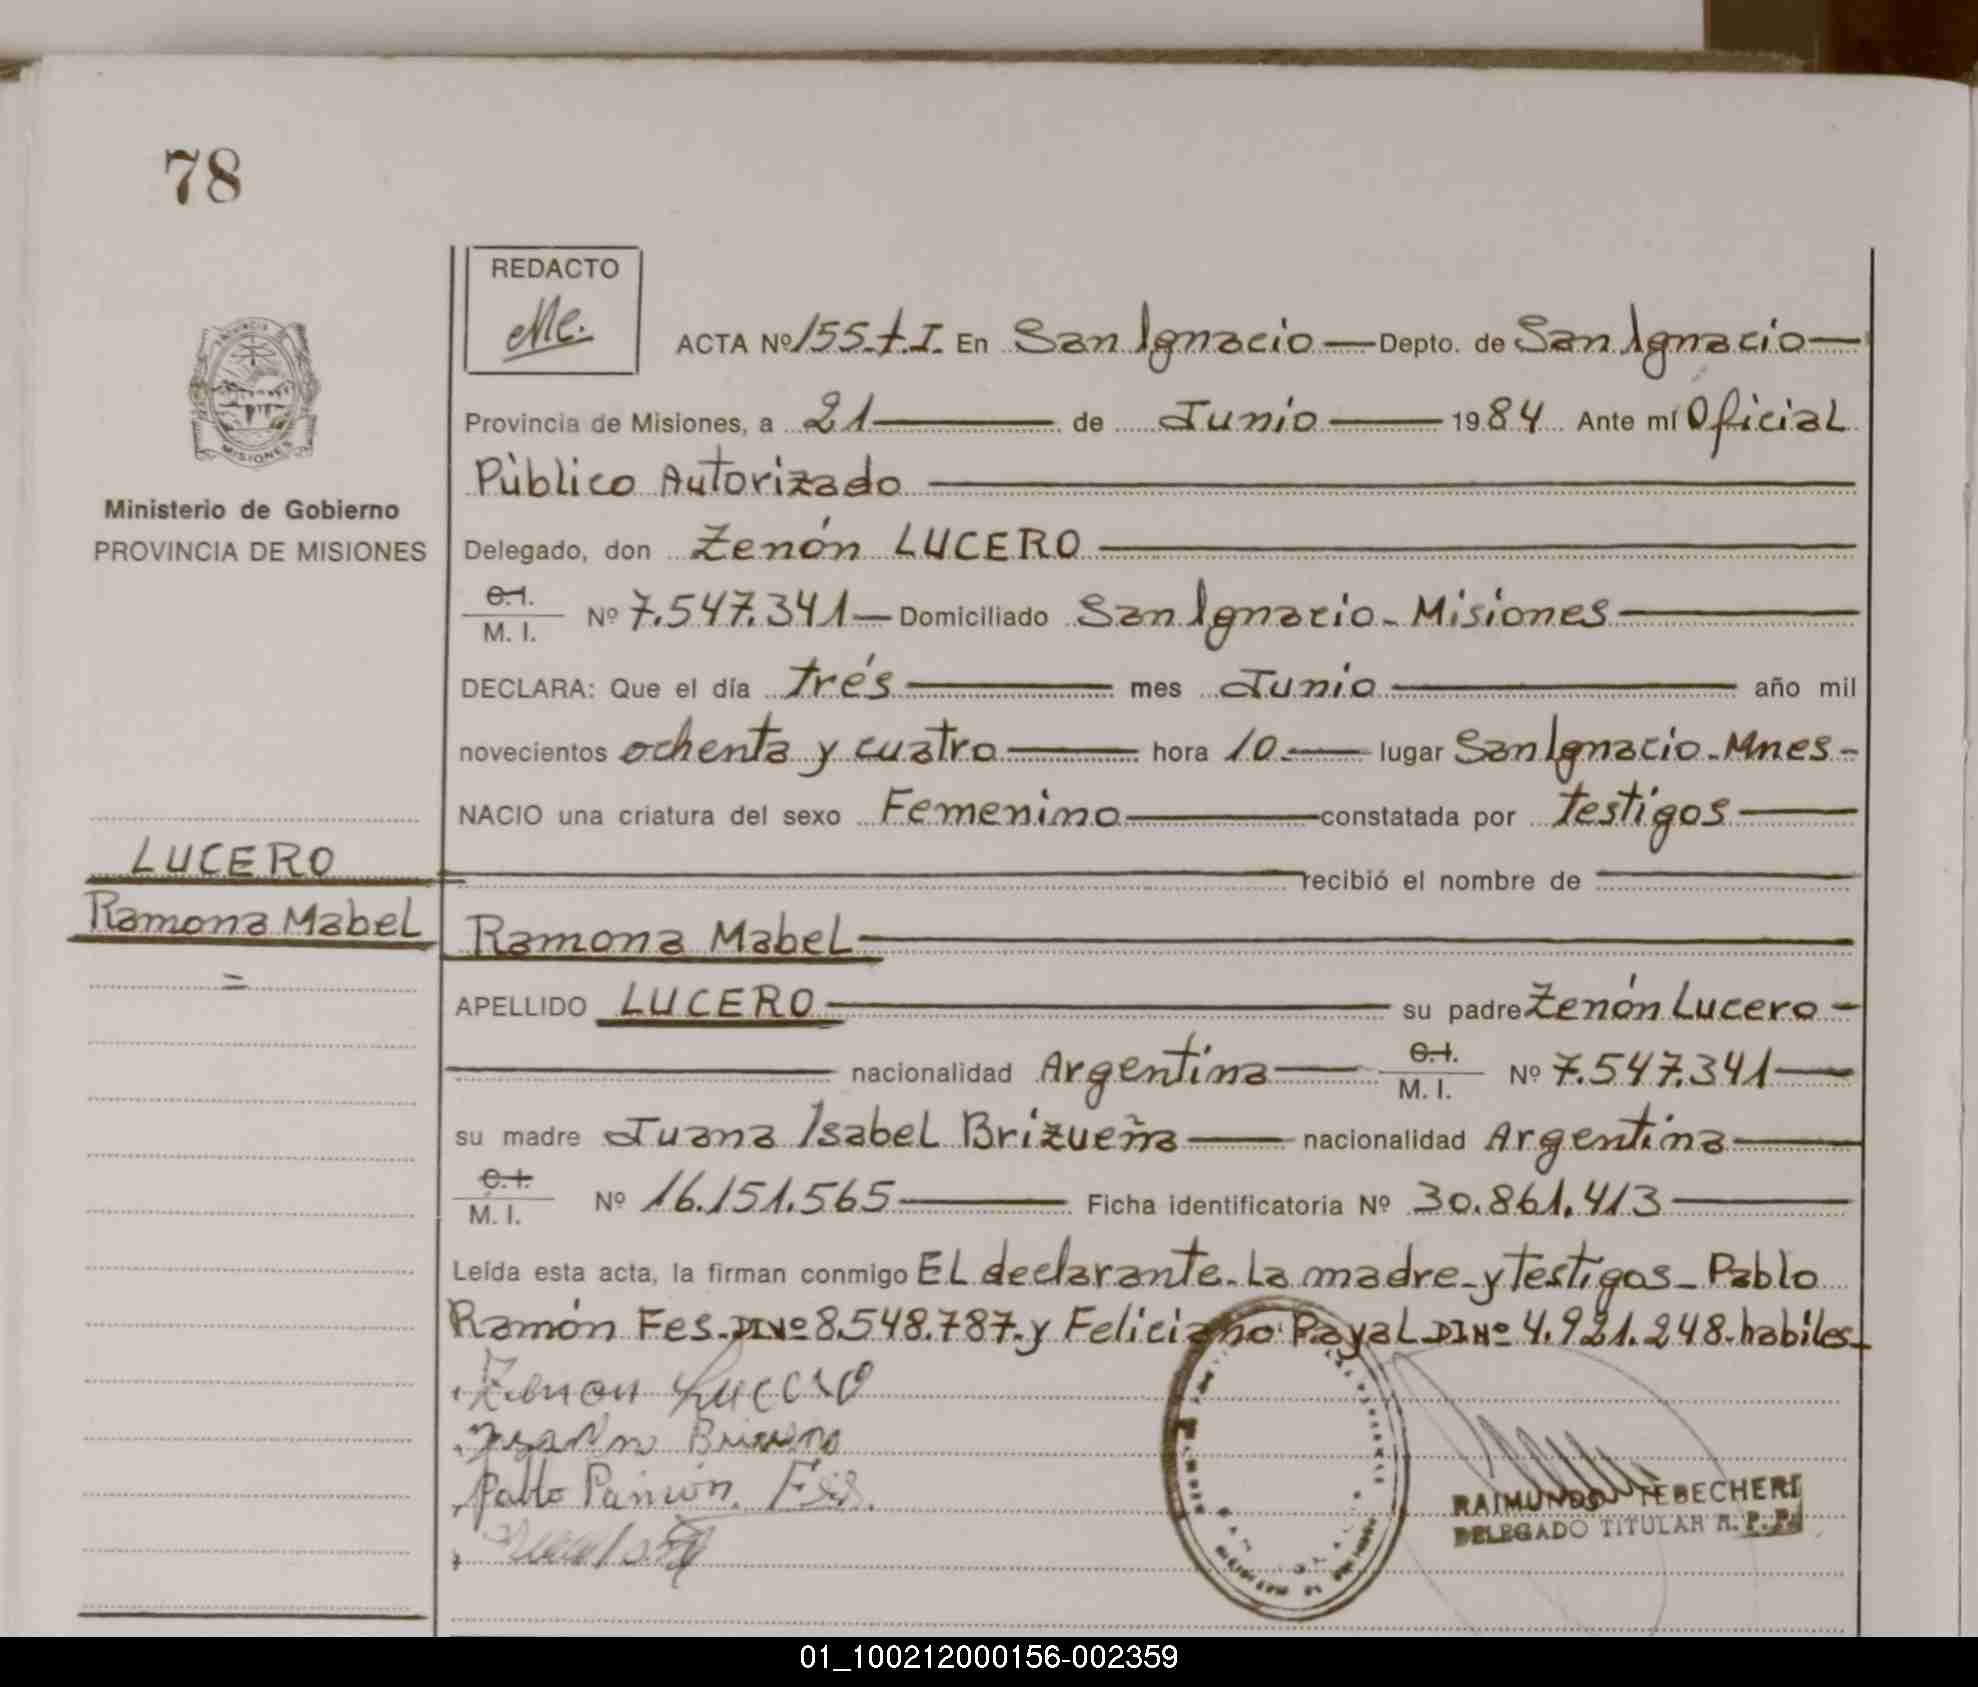 78
REDACTO
Me.
ACTA Nº 155-t.I. En San Ignacio — Depto. de San Ignacio —
Provincia de Misiones, a 21 — de Junio — 1984 Ante mí Oficial
Pùblico Autorizado
MISIONES
Ministerio de Gobierno
PROVINCIA DE MISIONES
Delegado, don Zenón LUCERO
C.I.
M. I. Nº 7.547.341 — Domiciliado San Ignacio - Misiones
DECLARA: Que el día trés — mes Junio — año mil
novecientos ochenta y cuatro — hora 10. — lugar San Ignacio - Mnes -
NACIO una criatura del sexo Femenino — constatada por testigos —
recibió el nombre de
LUCERO
Ramona Mabel
=
Ramona Mabel
APELLIDO LUCERO — su padre Zenón Lucero -
nacionalidad Argentina — C.I. M. I. Nº 7.547.341 —
su madre Juana Isabel Brizueña — nacionalidad Argentina —
C.I.
M. I. Nº 16.151.565 — Ficha identificatoria Nº 30.861.413 —
Leída esta acta, la firman conmigo El declarante - La madre - y testigos - Pablo
Ramón Fes - DI Nº 8.548.787 - y Feliciano Payal - DI Nº 4.921.248 - habiles -
Zenon Lucero
Pablo Ramón. Fes.
RAIMUNDO TEBECHERI
DELEGADO TITULAR R. P. P.
01_100212000156-002359